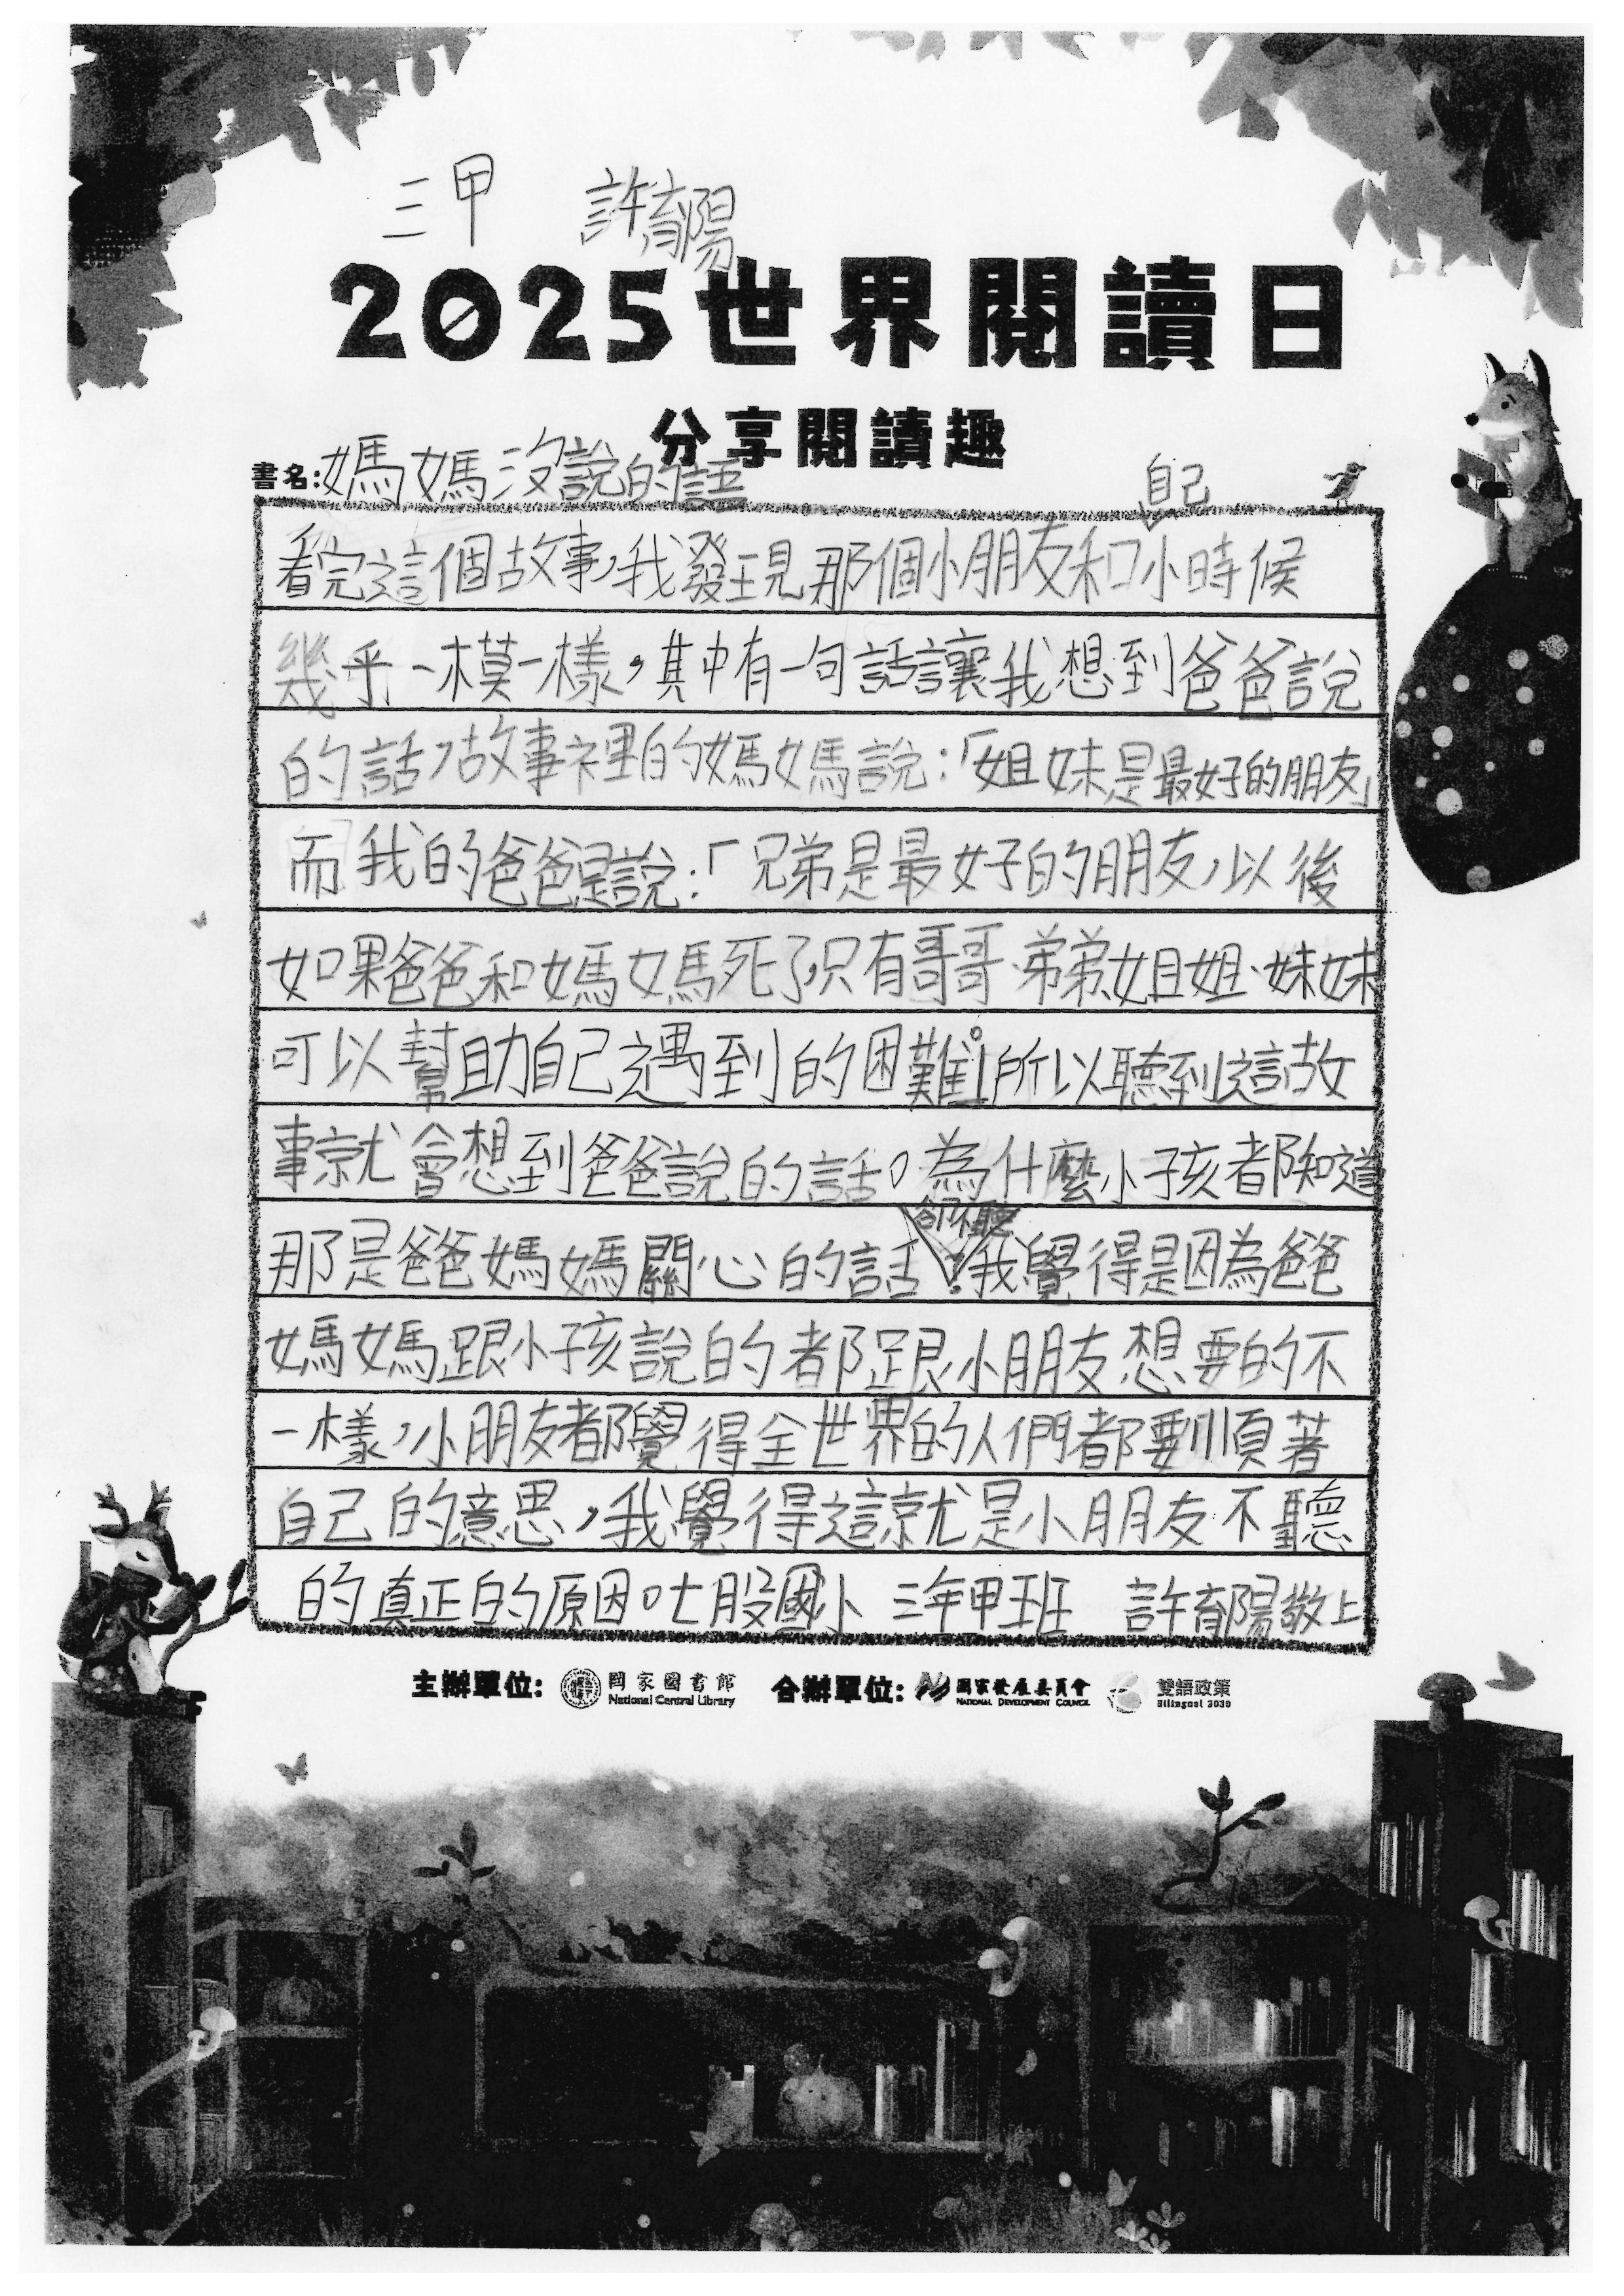 三甲 許育陽
2025世界閱讀日
分享閱讀趣
書名:媽媽沒說的語
自己
看完這個故事,我發現那個小朋友和小時候
幾乎一模一樣,其中有一句話讓我想到爸爸說
的話,故事裡的媽媽說:「姐妹是最好的朋友」
而我的爸爸是說:「兄弟是最好的朋友,以後
如果爸爸和媽媽死了,只有哥哥、弟弟、姐姐、妹妹
可以幫助自己遇到的困難。」所以聽到這故
事就會想到爸爸說的話。為什麼小孩都知道
卻不聽
那是爸爸媽媽關心的話?我覺得是因為爸爸
媽媽跟小孩說的都跟小朋友想要的不
一樣,小朋友都覺得全世界的人們都要順著
自己的意思,我覺得這就是小朋友不聽
的真正的原因吐股國小 三年甲班 許育陽敬上
主辦單位: 國家圖書館 National Central Library 合辦單位: 國家發展委員會 NATIONAL DEVELOPMENT COUNCIL 雙語政策 Bilingual 2030